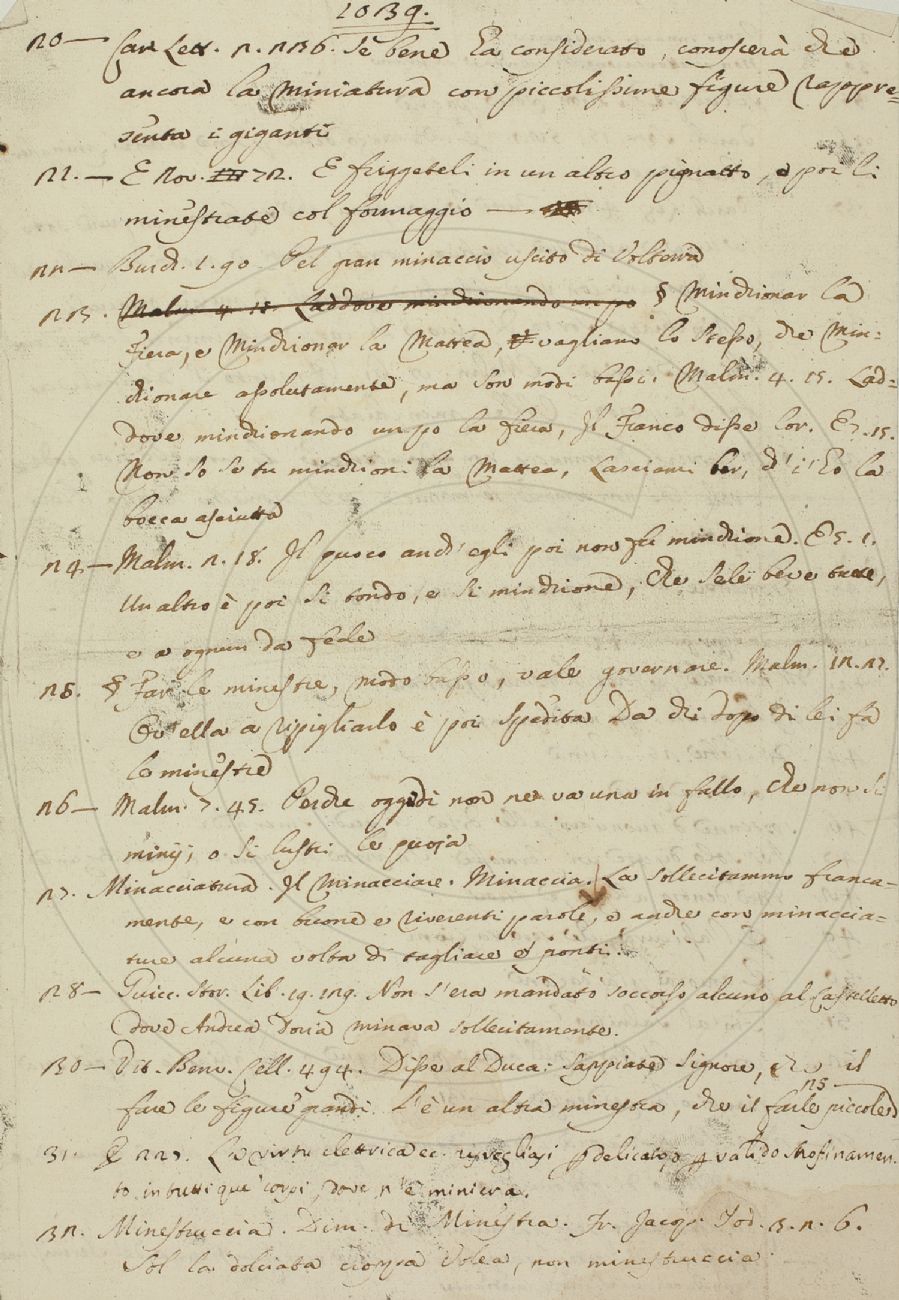 1039.
20— Car. Lett. 2. 236. Se bene Ea considerato, conoscerà che
ancora la Miniatura con piccolissime figure rappre=
senta i giganti
21.— E Nov. 72. E friggeteli in un altro pignatto, e poi li
minestrate col formaggio —
22— Burch. 1. 90. Pel gran minaccio uscito di Volterra
23. Malm. 4. 15. Laddove minchionando un po § Minchionar la
Fiera, e Minchionar la Mattea, vagliano lo stesso, che Min=
chionare assolutamente, ma son modi bassi. Malm. 4. 15. Lad=
dove minchionando un po la fiera, Il Franco disse lor. E 7. 15.
Non so se tu minchioni la Mattea, Lasciami ber, ch'i' ho la
bocca asciutta
24.— Malm. 2. 18. Il quoco anch'egli poi non fu minchione. E 5. 1.
Un altro è poi sì tondo, e sì minchione, Che se le beve tutte,
e a ognun da fede
25. § Far le minestre, modo basso, vale governare. Malm. 12. 27.
Ch'ella a ripigliarlo è poi spedita Da chi dopo di lei fa
le minestre
26— Malm. 7. 45. Perche oggidì non ne va una in fallo, Che non si
minij, o si lustri le quoja
27. Minacciatura. Il Minacciare. Minaccia. La sollecitammo franca=
mente, e con buone e riverenti parole, e anche con minaccia=
ture alcuna volta di tagliare e' ponti.
28— Guicc. Stor. Lib. 19. 129. Non s'era mandato soccorso alcuno al Castelletto
dove Andrea Doria minava sollecitamente.
30— Vit. Benv. Cell. 494. Disse al Duca: Sappiate Signore, che il
fare le figure grandi L'è un altra minestra, che il farle piccole
31. E 227. La virtù elettrica ec. risvegliasi p delicato, o p valido strofinamen.
to in tutti que' corpi, dove n'è miniera.
32. Minestruccia. Dim. di Minestra. Fr. Jacop. Tod. 3. 2. 6.
Sol la dolciata cioppa Volea, non minestruccia